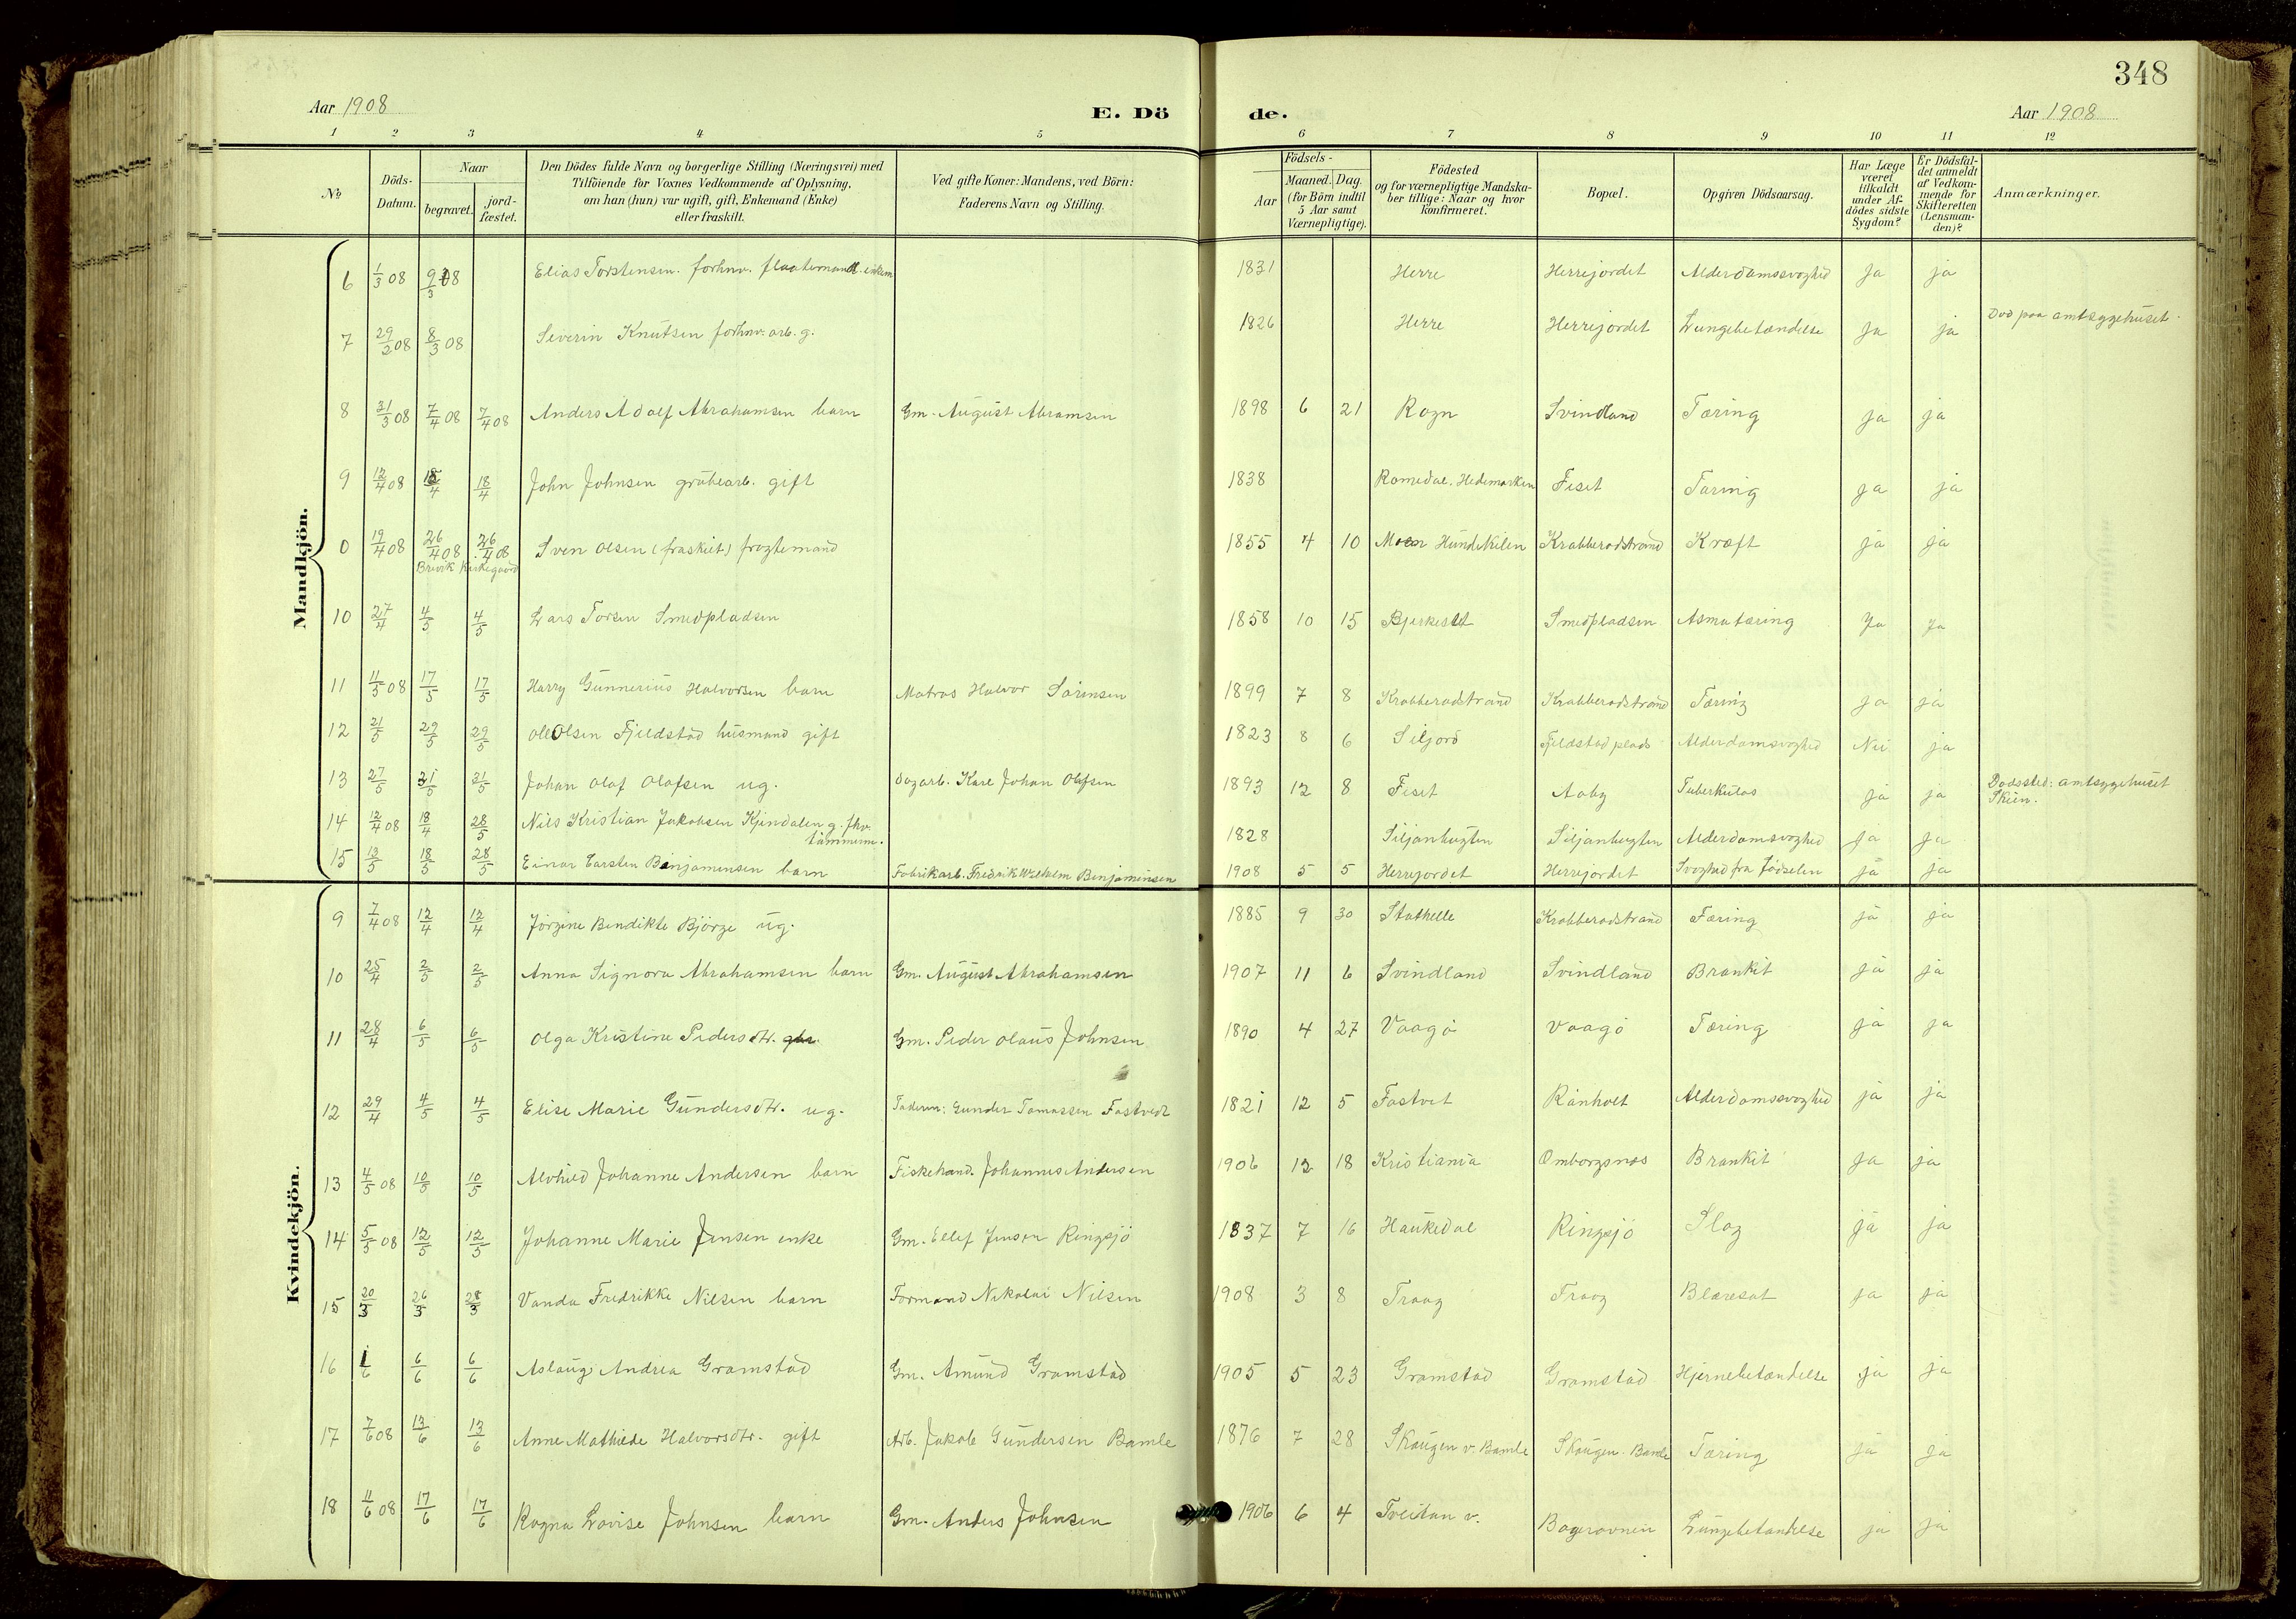 348
Aar 1908 E. Dö de. Aar 1908
1 2 3 4 5 6 7 8 9 10 11 12
No. Döds-Datum. Naar begravet. jordfæstet. Den Dödes fulde Navn og borgerlige Stilling (Næringsvei) med Tilföiende for Voxnes Vedkommende af Oplysning, om han (hun) var ugift, gift, Enkemand (Enke) eller fraskilt. Ved gifte Koner: Mandens, ved Börn: Faderens Navn og Stilling. Födsels- Aar Maaned. Dag. (for Börn indtil 5 Aar samt Værnepligtige). Födested og for værnepligtige Mandskaber tillige: Naar og hvor konfirmeret. Bopæl. Opgiven Dödsaarsag. Har Læge været tilkaldt under Afdödes sidste Sygdom? Er Dödsfaldet anmeldt af Vedkommende for Skifteretten (Lensmanden)? Anmærkninger.
Mandkjön.
6 1/3 08 9/3 08 Elias Torstensen. forhnv. flaatemand. enkem 1831 Herre Herrejordet Alderdomssvaghed Ja ja
7 29/2 08 8/3 08 Severin Knutsen forhnv. arb. g. 1826 Herre Herrejordet Lungebetændelse Ja ja Död paa amtsygehuset.
8 31/3 08 7/4 08 7/4 08 Anders Adolf Abrahamsen barn Gm. August Abramsen 1898 6 21 Rogn Svindland Tæring ja ja
9 12/4 08 18/4 18/4 John Johnsen grubearb. gift 1838 Romedal. Hedemarken Feset Tæring ja ja
0 19/4 08 26/4 08 26/4 08 Sven Olsen (fraskilt) fragtemand 1855 4 10 Hundekilen Krabberødstrand Kræft ja ja
Brevik Kirkegaard
10 27/4 4/5 4/5 Lars Torsen Smedpladsen 1858 10 15 Bjerkeset Smedpladsen Asmatæring Ja Ja
11 11/5 08 17/5 17/5 Harry Gunnerius Halvorsen barn Matros Halvor Sörensen 1899 7 8 Krabberødstrand Krabberødstrand Tæring ja ja
12 21/5 29/5 29/5 Ole Olsen Fjeldstad husmand gift 1823 8 6 Siljord Fjeldstad plads Alderdomsvaghed Nei ja
13 27/5 31/5 31/5 Johan Olaf Olafsen ug. dagarb. Karl Johan Olafsen 1893 12 8 Feset Aaby Tuberkulos ja ja Dødssted: amtsygehuset Skien.
14 12/4 08 18/4 28/5 Nils Kristian Jakobsen Kjendalen g. fhv. tömmerm. 1828 Siljanbugten Siljanbugten Alderdomsvaghed ja ja
15 13/5 18/5 28/5 Einar Carsten Benjamensen barn Fabrikarb. Fredrik Wilhelm Benjaminsen 1908 5 5 Herrejordet Herrejordet Svaghed fra födselen ja ja
Kvindekjön.
9 7/4 08 12/4 12/4 Jörgine Bendikte Björge ug. 1885 9 30 Stathelle Krabberødstrand Tæring ja ja
10 25/4 2/5 2/5 Anna Signora Abrahamsen barn Gm. August Abrahamsen 1907 11 6 Svindland Svindland Bronkit ja ja
11 28/4 6/5 6/5 Olga Kristine Pedersdtr. Gm. Peder Olaus Johnsen 1890 4 27 Vaagö Vaagö Tæring ja ja
12 29/4 4/5 4/5 Elise Marie Gundersdtr. ug. Faderen: Gunder Tomassen Fostvedt 1821 12 5 Fostvet Rönholt Alderdomssvaghed ja ja
13 4/5 08 10/5 10/5 Alvhild Johanne Andersen barn Fiskehand. Johannes Andersen 1906 12 18 Kristiania Omborgsnæs Bronkit ja ja
14 5/5 08 12/5 12/5 Johanne Marie Jensen enke Gm. Ellef Jenson Ringsjö 1837 7 16 Haukedal Ringsjö Slag ja ja
15 20/3 26/3 28/3 Vanda Fredrikke Nilsen barn Formand Nikolai Nilsen 1908 3 8 Traag Traag Blæresot ja ja
16 1/6 6/6 6/6 Aslaug Andrea Gromstad Gm. Amund Gromstad 1905 5 23 Gromstad Gromstad Hjernebetændelse ja ja
17 7/6 08 13/6 13/6 Anne Mathilde Halvorsdtr. gift Arb. Jakob Gundersen Bamle 1876 7 28 Skougen v. Bamle Skougen. Bamle Tæring ja ja
18 11/6 08 17/6 17/6 Ragna Lovise Johnsen barn Gm. Anders Johnsen 1906 6 4 Treitan v. Lungebetændelse ja ja